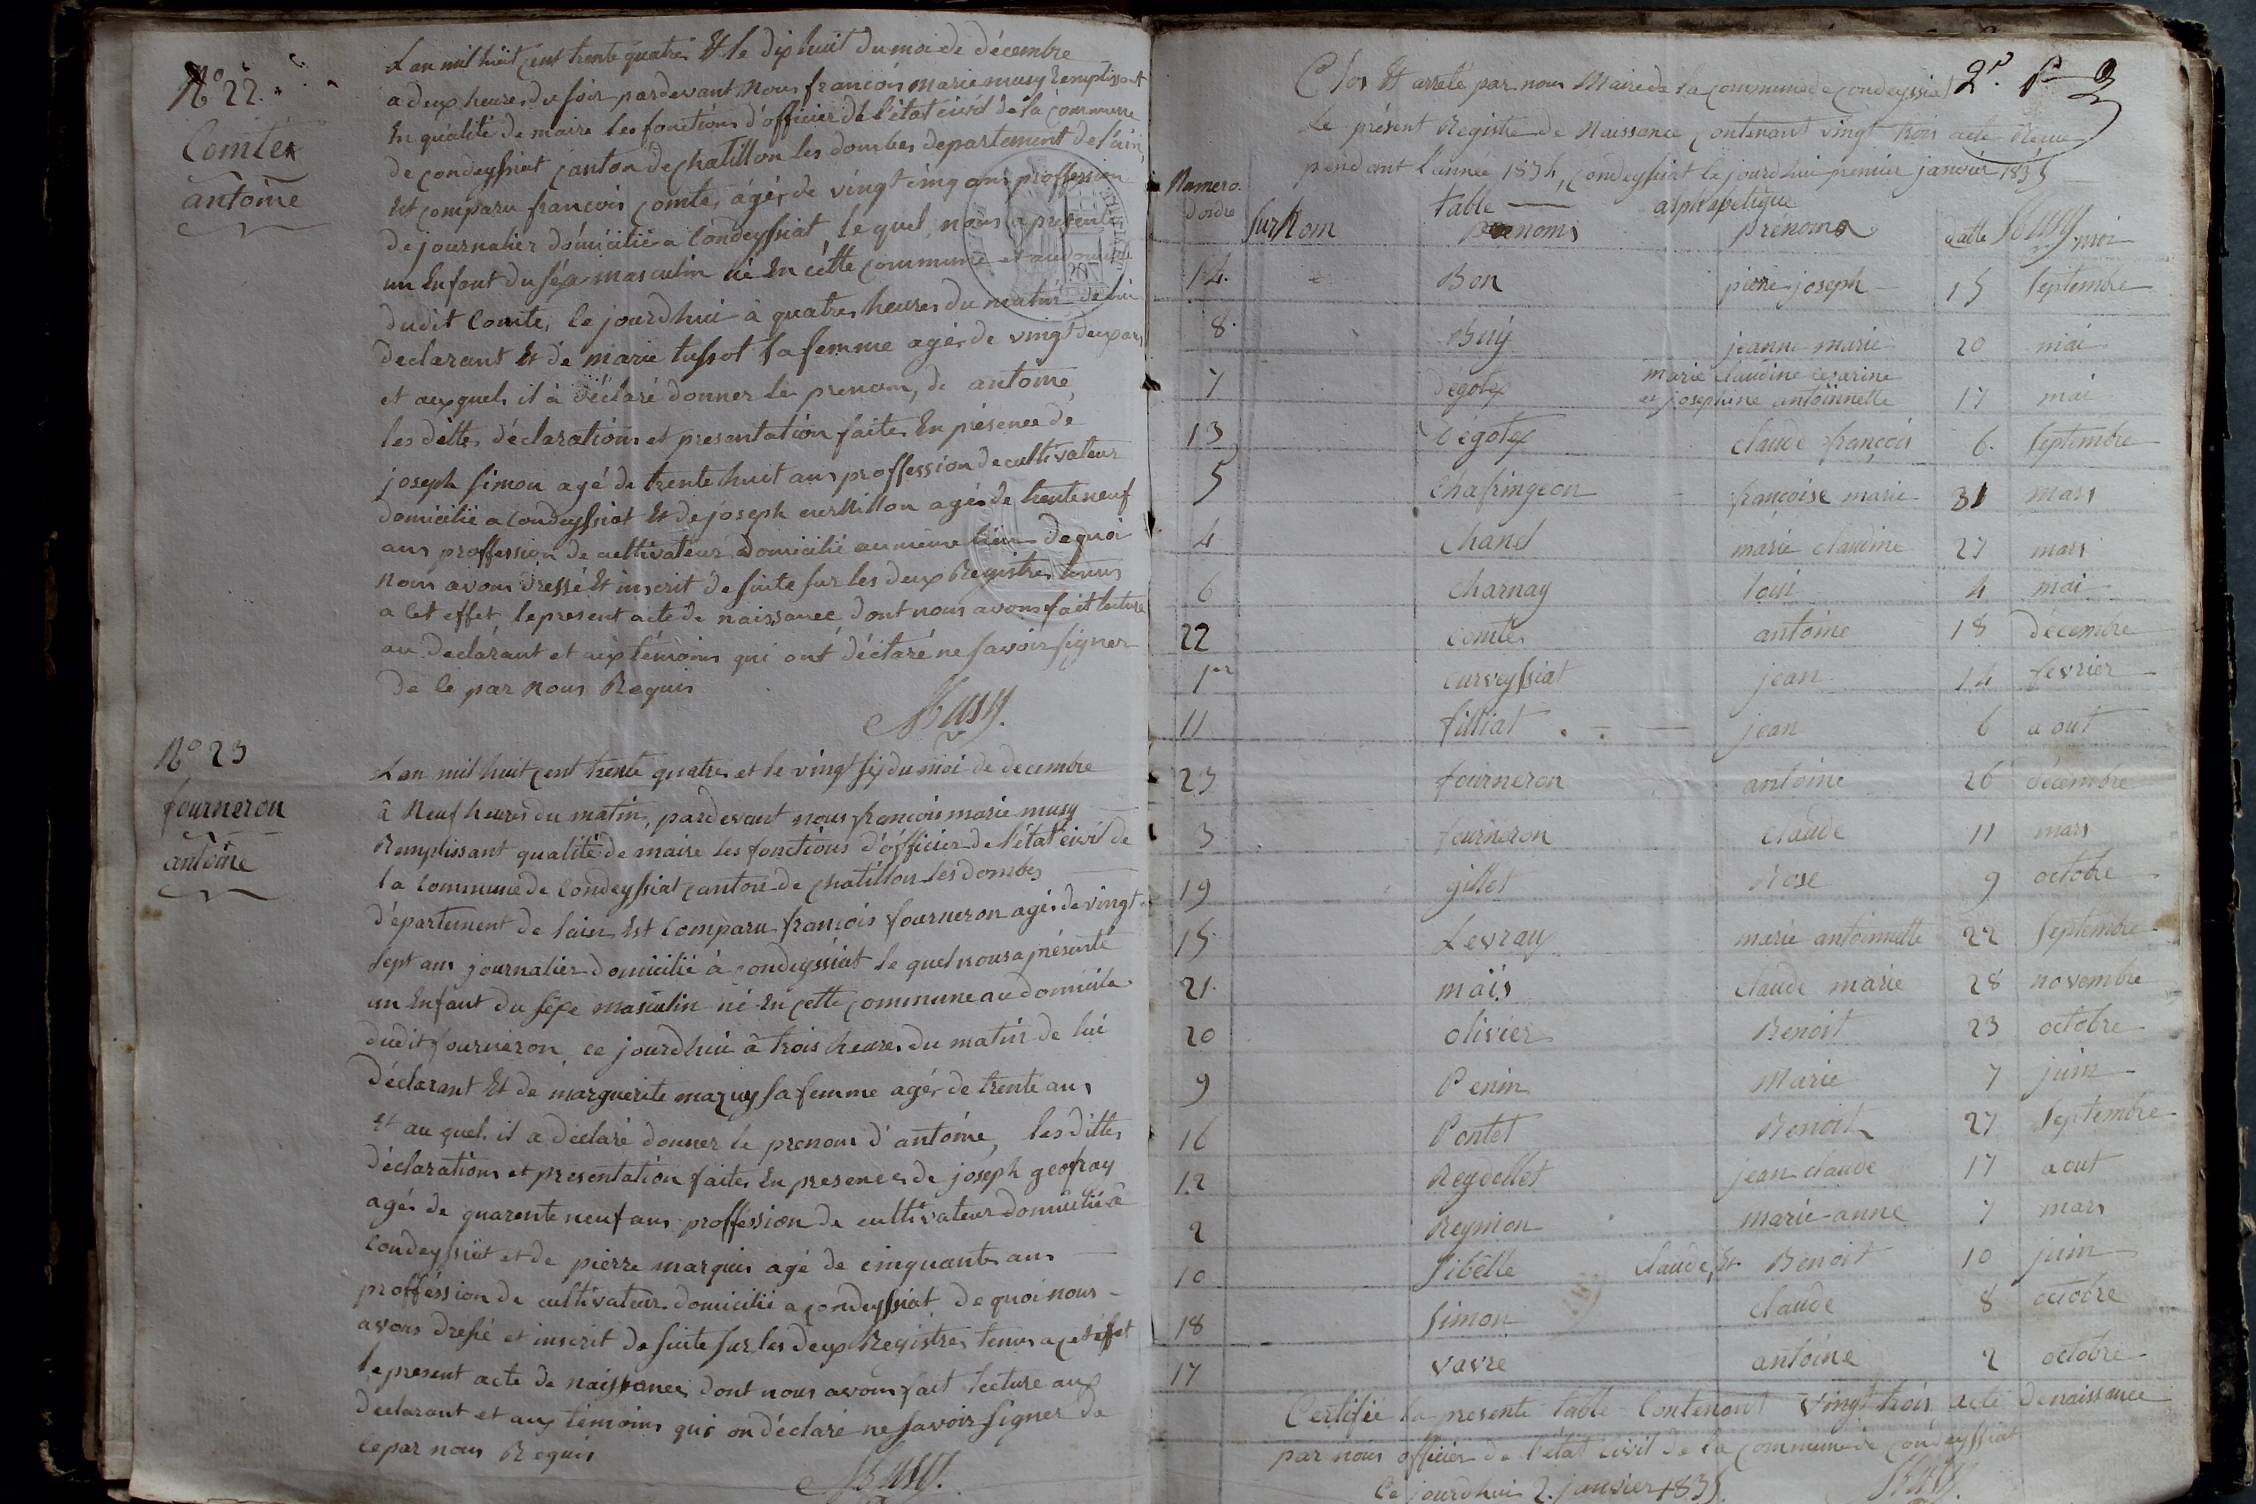 N° 22.
Comter
antoine
L'an mil huit cent trente quatre Et le dix huit du moi de décembre
a deux heures du soir pardevant Nous françois marie musy Remplissant
En qualité de maire les fonctions d'officier de l'état civil de la commune
de condeyssiat canton de chatillon les dombes departement de l'ain,
Est comparu françois comte, agés de vingt cinq ans proffession
de journalier domicilié a Condeyssiat, le quel nous a presenté
un Enfant du séxe masculin né En cette commune et au domicile
dudit Comte, ce jourdhui à quatres heures du matin de lui
Declarant Et de marie tussot sa femme agés de vingt deux ans
et auxquels il à déclaré donner le prenom, de antoine
les dittes déclarations et presentation faites En présence de
joseph simon agé de trente huit ans proffession de cultivateur
domicilié a Condeyssiat Et de joseph agés de trente neuf
ans proffession de cultivateur Domicilié au même lieu De quoi
Nous avons dressé Et inscrit de suite sur les deux Registres tenus
a Cet effet, le present acte de naissance dont nous avons fait lecture
au declarant et aux témoins qui ont déclaré ne savoir signer
de ce par nous Requis
Musy.
N° 23
fourneron
antoine
L'an mil huit cent trente quatres et le vingt six du moi de decembre
à Neuf heures du matin, pardevant nous françois marie musy
Remplissant qualité de maire les fonctions d'officier de l'état civil de
la Commune de Condeyssiat canton de chatillon les dombes
département de l'ain Est Comparu françois fourneron agés de vingt
sept ans journalier domicilié à condeyssiat le quel nous a présenté
un Enfant du séxe masculin né En cette commune au domicile
dudit fourneron, ce jourdhui à trois heures du matin de lui
déclarant Et de marguerite mazuy sa femme agés de trente ans
Et au quel il a declaré donner le prenom d'antoine, les dittes
déclarations et presentation faites En presences de joseph geofray
agés de quarente neuf ans proffession de cultivateur domicilié à
Condeyssiat et de pierre marquis agé de cinquantes ans
proffession de cultivateur domicilié a condeyssiat de quoi nous
avons dressé et inscrit de suite sur les deux Registres tenus a cet effet
le present acte de naissances dont nous avons fait lecture aux
declarant et aux témoins qui on déclaré ne savoir signer de
ce par nous Requis
Musy.
Clos Et arreté par nous Maire de la commune de Condeyssiat
Le présent Registre de Naissance Contenant vingt trois acte Réçue
pendant l'année 1834, Condeyssiat le jourdhui premier janvier 1835
table alphabétique Musy
Numero d'ordre surNom prénoms datte moi
14. Bon pierre joseph 15 septembre
8. Buy jeanne marie 20 mai
7 dégotex marie claudine césarine et josephine antoinnette 17 mai
13 dégotex claude françois 6. septembre
5 chafringeon françoise marie 31 mars
4 chanel marie claudine 27 mars
6 charnay loui 4 mai
22 comtes antoine 18 décembre
1er curveyssiat jean 14 fevrier
11 filliat jean 6 aout
23 fourneron antoine 26 décembre
3 fourneron claude 11 mars
19 gillet Rose 9 octobre
15 Levray marie antoinnette 22 septembre
21. mais claude marie 28 novembre
20 olivier Benoit 23 octobre
9 Penin Marie 7 juin
16 Pontet Benoit 27 septembre
12 Reydellet jean claude 17 aout
2 Reynion marie-anne 7 mars
10 sibelle Claude, Et Benoit 10 juin
18 simon claude 8 octobre
17 vavre antoine 2 octobre
Certifié la presente table Contenant vingt trois acte de naissance
par nous officier de l'état civil de la commune de Condeyssiat
Ce jourdhui 2. janvier 1835.
Musy